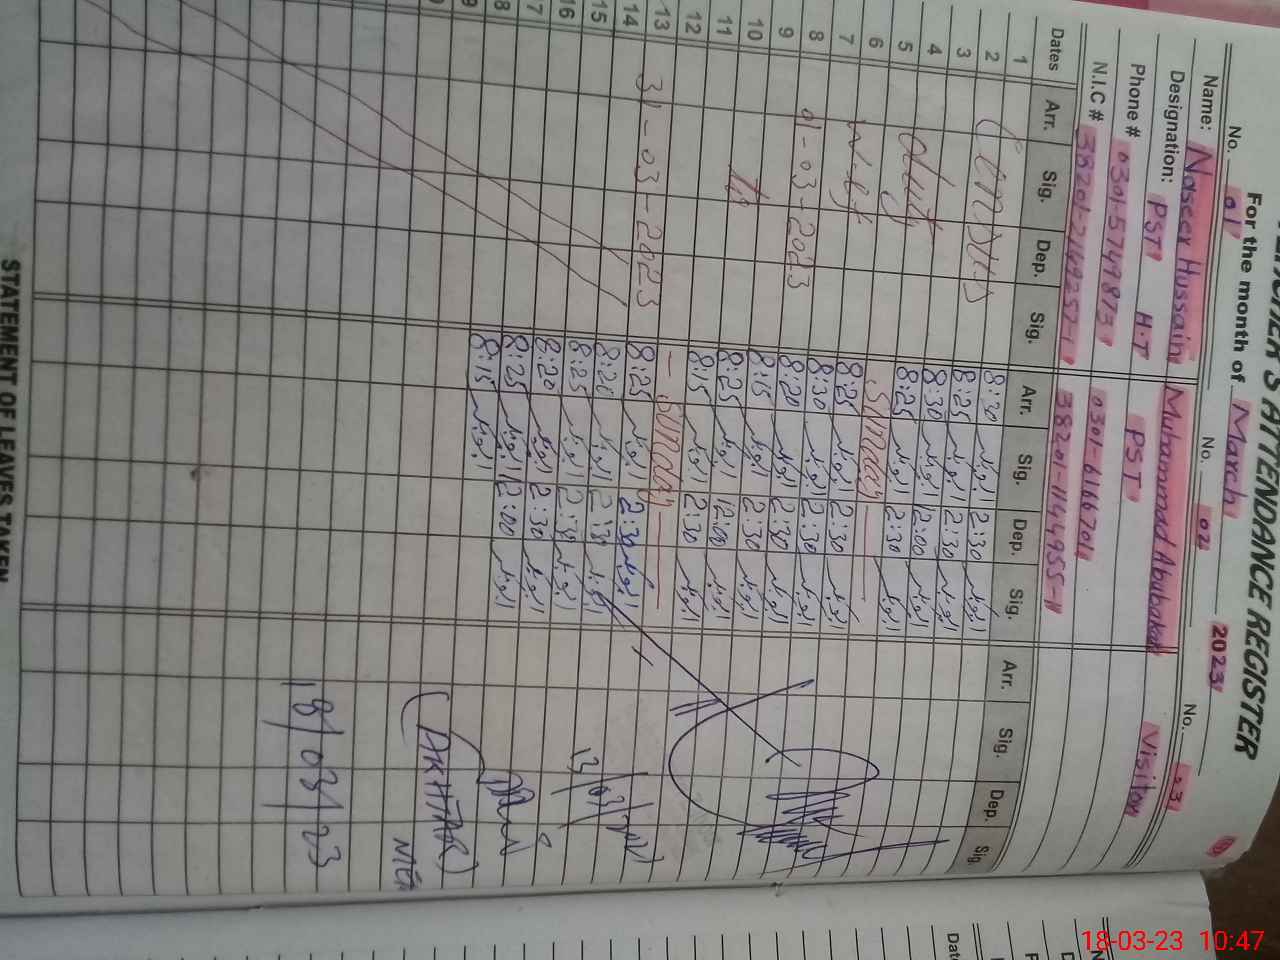 TEACHER'S ATTENDANCE REGISTER
For the month of March 2023
No. 01 No. 02 No. 03
Name: Naseer Hussain Muhammad Abubakar Visitor
Designation: PST H.T PST
Phone # 0301-5749873 0301-6166701
N.I.C # 38201-2149257-1 38201-1144955-11
Dates Arr. Sig. Dep. Sig. Arr. Sig. Dep. Sig. Arr. Sig. Dep. Sig.
1 8:30 ابوبکر 2:30 ابوبکر
2 Census 8:25 ابوبکر 2:30 ابوبکر
3 8:30 ابوبکر 12:00 ابوبکر
4 duty 8:25 ابوبکر 2:30 ابوبکر
5 Sunday
6 w.e.f 8:25 ابوبکر 2:30 ابوبکر
7 8:30 ابوبکر 2:30 ابوبکر
8 01-03-2023 8:20 ابوبکر 2:30 ابوبکر
9 8:15 ابوبکر 2:30 ابوبکر
10 to 8:25 ابوبکر 12:00 ابوبکر
11 8:15 ابوبکر 2:30 ابوبکر
12 - Sunday
13 31-03-2023 8:25 ابوبکر 2:30 ابوبکر
14 8:20 ابوبکر 2:30 ابوبکر
15 8:25 ابوبکر 2:30 ابوبکر
16 8:20 ابوبکر 2:30 ابوبکر
17 8:25 ابوبکر 12:00 ابوبکر
18 8:15 ابوبکر
(AKHTAR)
18/03/23
STATEMENT OF LEAVES TAKEN
18-03-23 10:47